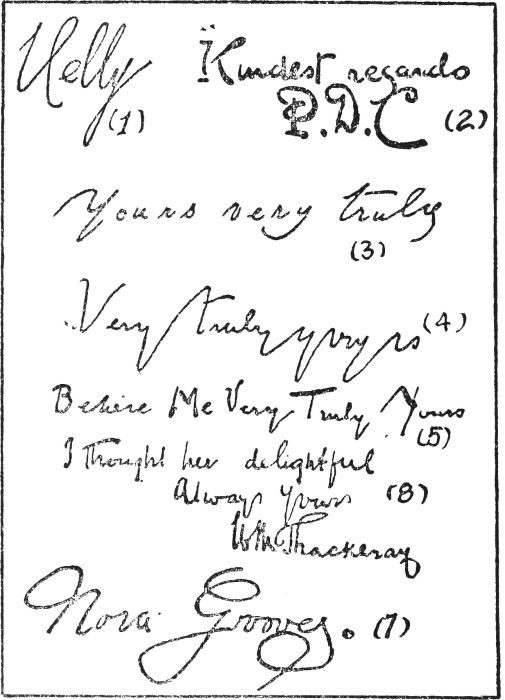 Kindest regards
P.D.C (2)
(1)
Yours very truly
(3)
Very truly yours (4)
Believe Me Very Truly Yours
(5)
I thought her delightful
Always yours (8)
Wm Thackeray
Nora Grooves. (7)